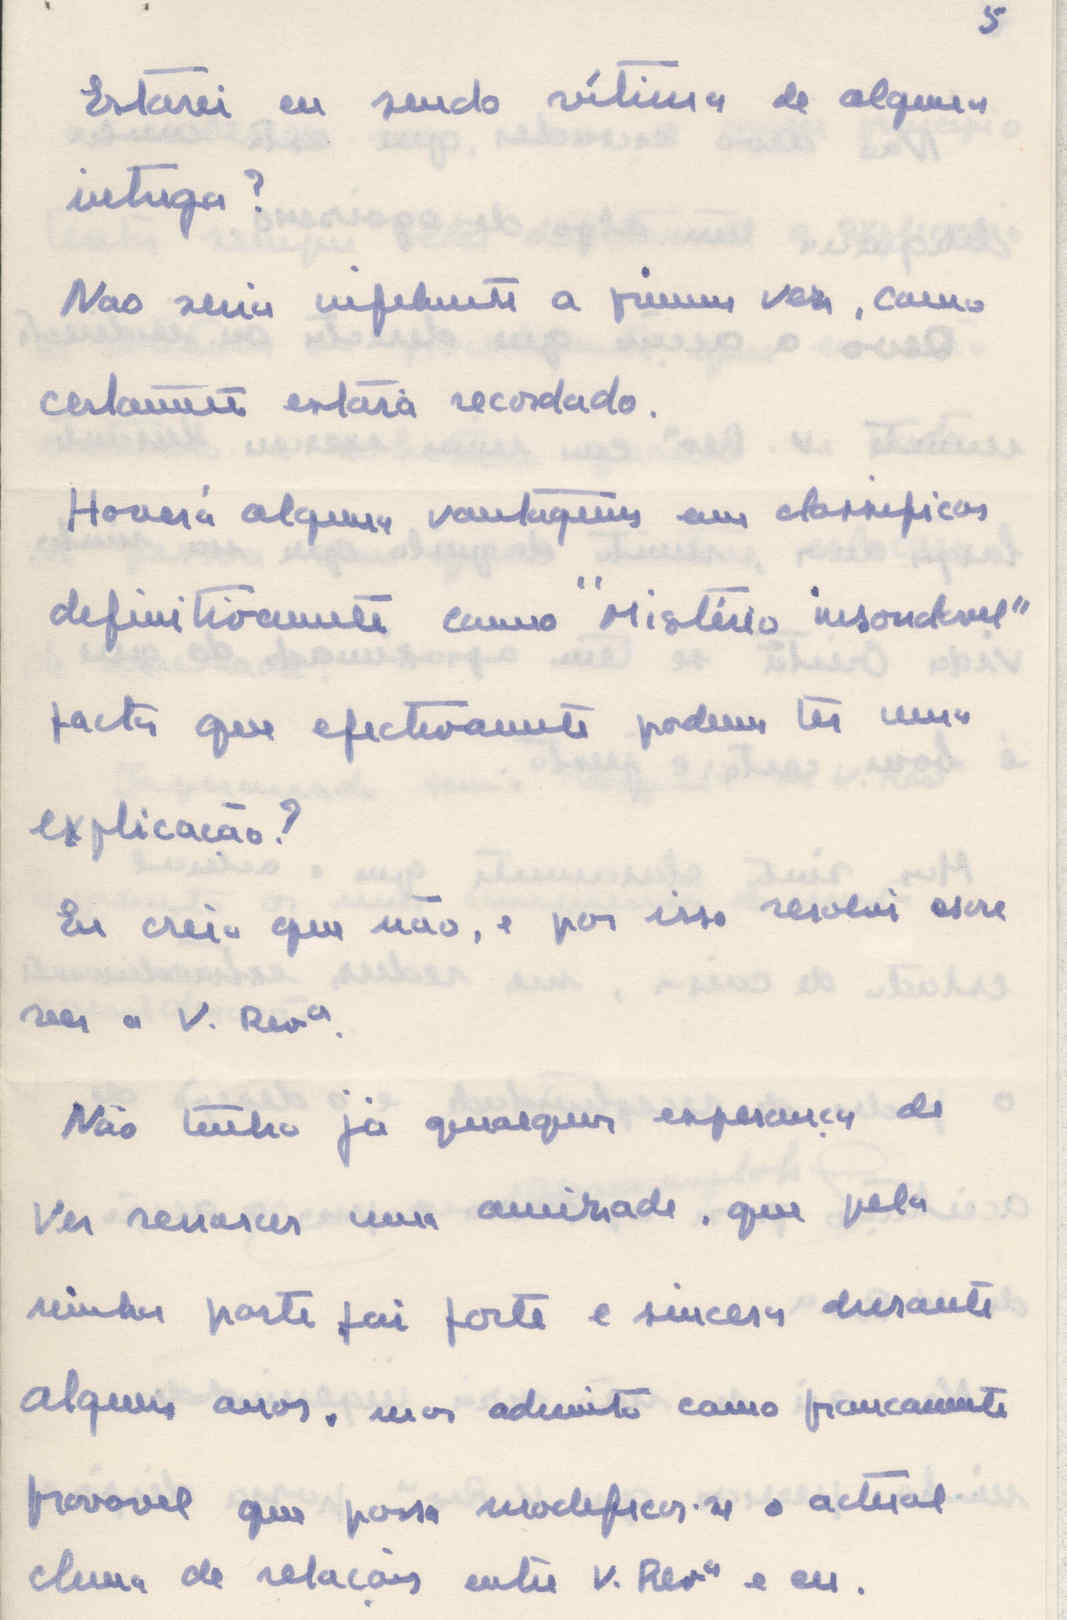 5
Estarei eu sendo vítima de alguma
intriga?
Nao seria infelizmente a primeira vez, como
certamente estará recordado.
Haverá alguma vantagem em classificar
definitivamente como "Mistério insondavel"
factos que efectivamente podem ter uma
explicação?
Eu creio que não, e por isso resolvi escre
ver a V. Revª.
Não tenho já qualquer esperança de
ver renascer uma amizade, que pela
minha parte foi forte e sincera durante
alguns anos, mas admito como francamente
provavel que possa modificar-se o actual
clima de relações entre V. Revª e eu.